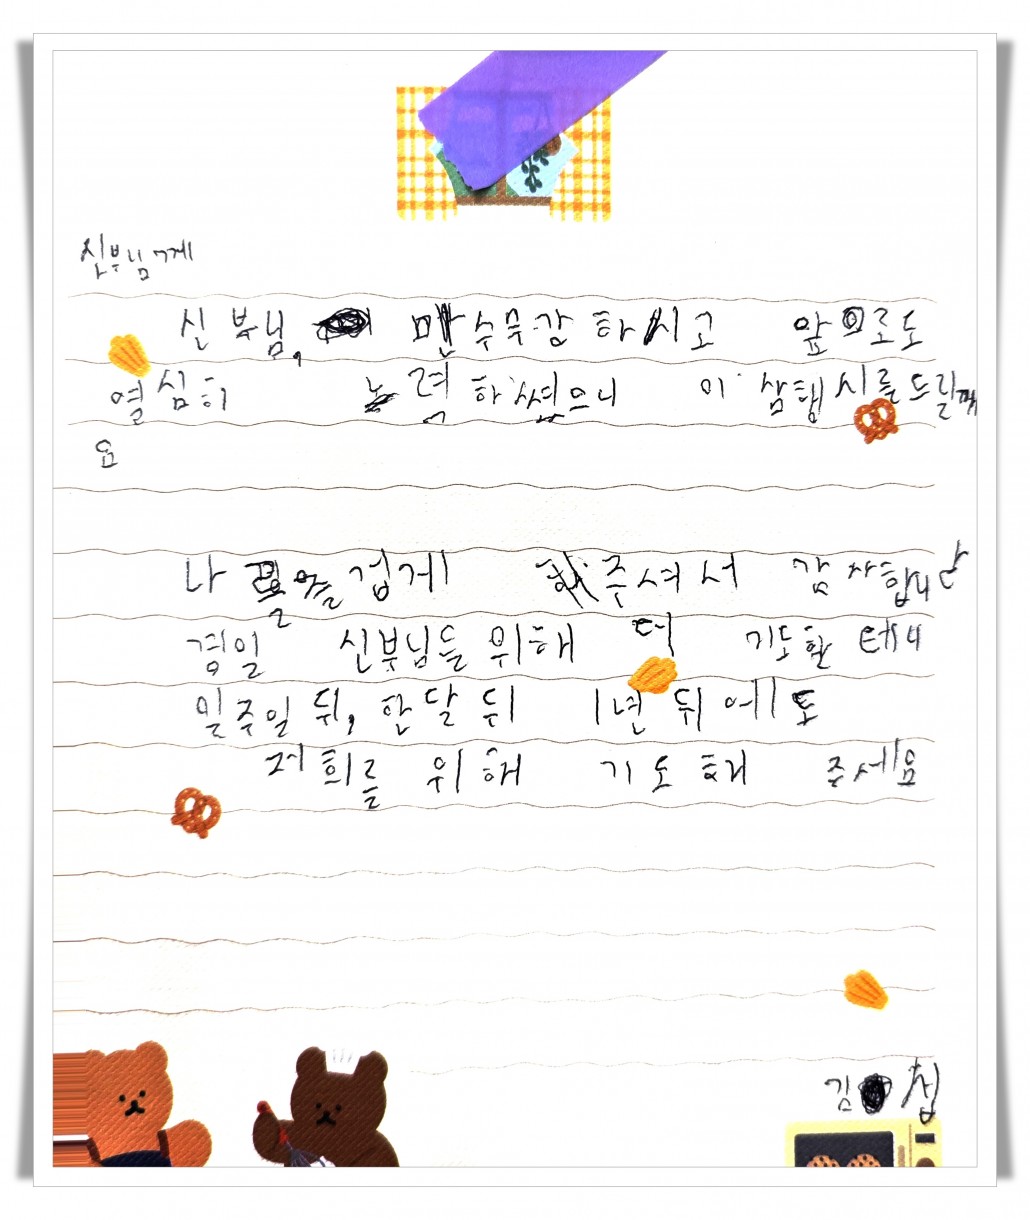 신부님께
신부님, 만수무강 하시고 앞으로도
열심히 노력하셨으니 이 삼행시를 드릴께
요
나 즐겁게 해주셔서 감사합니다
경일 신부님을 위해 더 기도할 테니
일주일 뒤, 한달 뒤 1년 뒤에도
저희를 위해 기도해 주세요
김